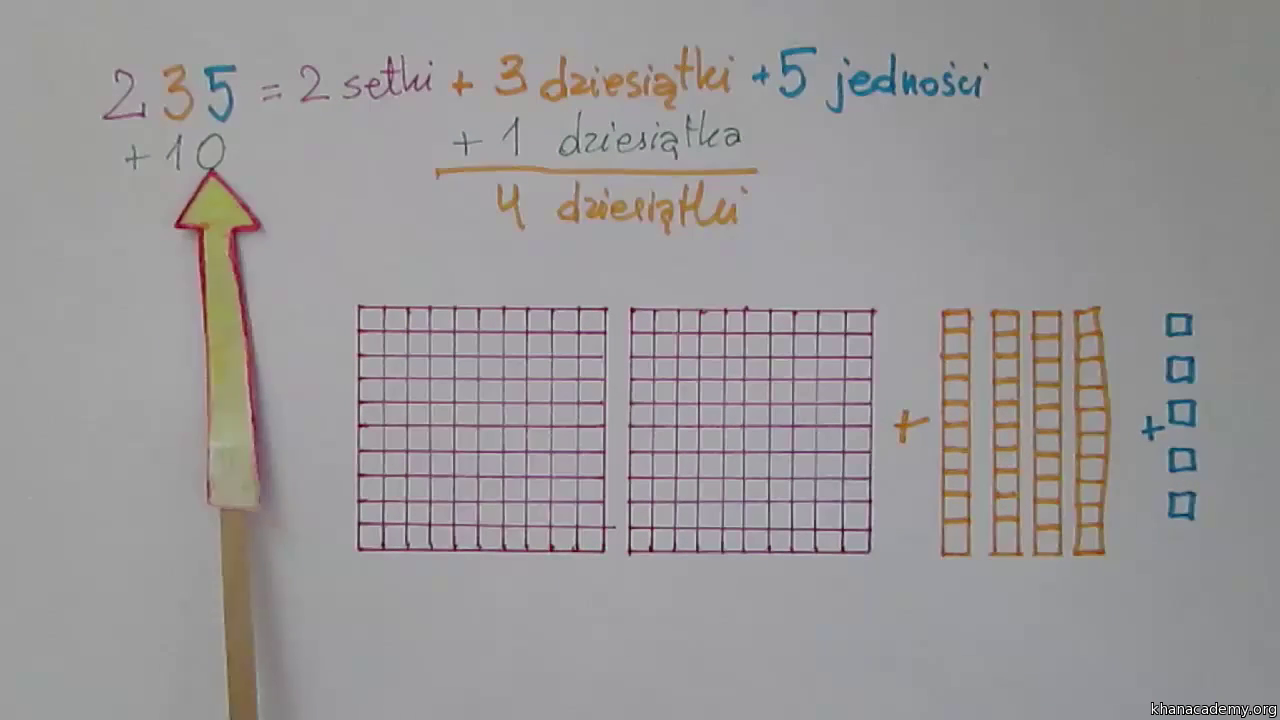 235 = 2 setki + 3 dziesiątki + 5 jedności
+10 + 1 dziesiątka
4 dziesiątki
+ +
khanacademy.org